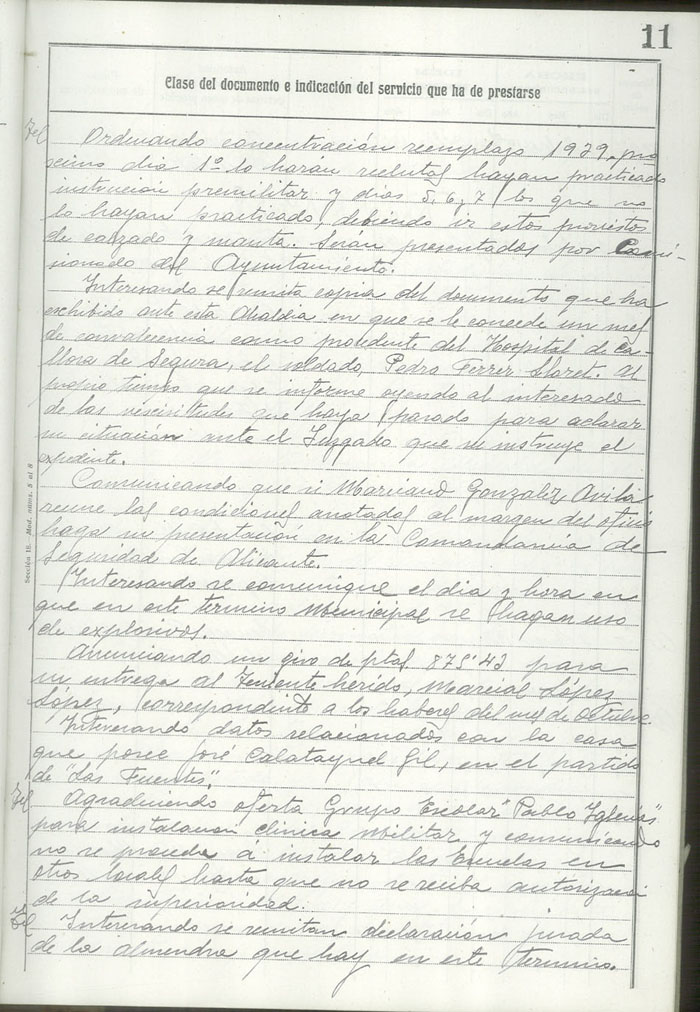 11
Clase del documento e indicación del servicio que ha de prestarse
Tel Ordenando concentración reemplazo 1929, pró
ximo dia 1º lo harán reclutas hayan practicado
instrucción premilitar y dias 5, 6, 7 los que no
lo hayan practicado, debiendo ir estos provistos
de calzado y manta. Serán presentados por Comi-
sionado del Ayuntamiento.
Interesando se remita copia del documento que ha
exhibido ante esta Alcaldia en que se le concede un mes
de convalecencia como procedente del Hospital de Ca-
llosa de Segura, el soldado, Pedro Ferrer Lloret. Al
propio tiempo que se informe oyendo al interesado
de las vicisitudes que haya pasado para aclarar
su situación ante el Juzgado que se instruye el
expediente.
Comunicando que si Marciano Gonzalez Avila
reune las condiciones anotadas al margen del oficio
haga su presentación en la Comandancia de
Seguridad de Alicante.
Interesando se comunique el dia y hora en
que en este termino Municipal se hagan uso
de explosivos.
Anunciando un giro de ptas. 875'43 para
su entrega al Teniente herido, Marcial López
López, correspondiente a los haberes del mes de Octubre.
Interesando datos relacionados con la casa
que posee José Calatayud Gil, en el partido
de "Las Fuentes".
Tel Agradeciendo oferta Grupo Escolar "Pablo Iglesias"
para instalación clinica Militar y comunicando
no se proceda á instalar las Escuelas en
otros locales hasta que no se reciba autorización
de la superioridad.
Tel Interesando se remitan declaración jurada
de la almendra que hay en este termino.
Sección 1ª. - Mod. nums. 5 al 8